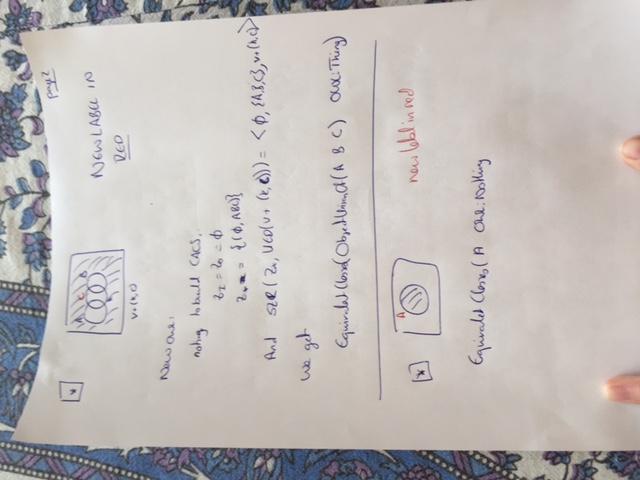 page 2
*
A C B
v+(h,c)
NEW LABEL IN
RED
New one:
noting to build CACS.
Z_I = Z_0 = ϕ
= {(ϕ, ABC)}
And (h, c))) = <ϕ, {A,B,C}, v+(h,c)>
We get
Equivalet Classes(ObjectUnionOf(A B C) owl:Thing)
*
A
new label in red
Equivalet Classes(A owl:Nothing